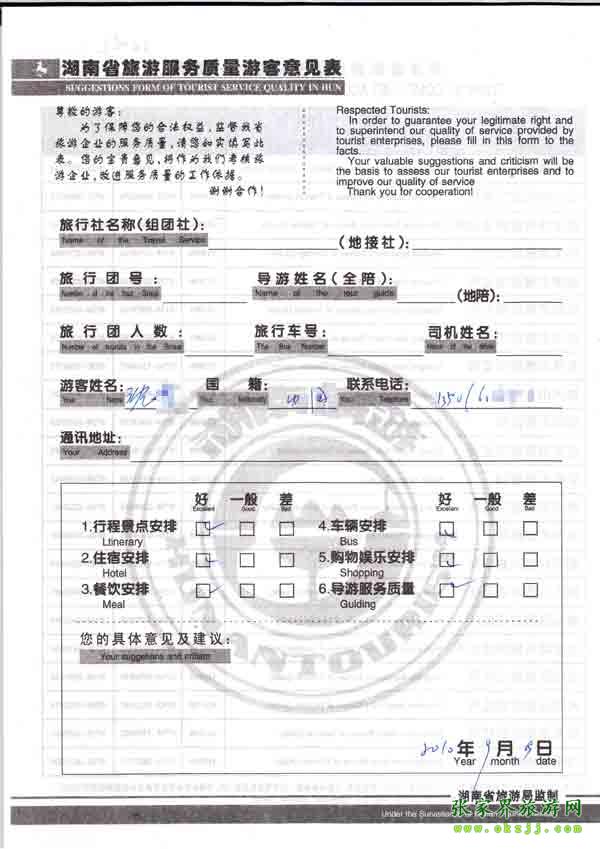 湖南省旅游服务质量游客意见表
SUGGESTIONS FORM OF TOURIST SERVICE QUALITY IN HUN
尊敬的游客:
为了保障您的合法权益,监督我省
旅游企业的服务质量,请您如实填写此
表。您的宝贵意见,将作为我们考核旅
游企业,改进服务质量的工作依据。
谢谢合作!
Respected Tourists:
In order to guarantee your legitimate right and
to superintend our quality of service provided by
tourist enterprises, please fill in this form to the
facts.
Your valuable suggestions and criticism will be
the basis to assess our tourist enterprises and to
improve our quality of service
Thank you for cooperation!
旅行社名称(组团社): (地接社):
Name of the Travel Service
旅行团号: 导游姓名(全陪): (地陪):
Number of the tour Group Name of the tour guide
旅行团人数: 旅行车号: 司机姓名:
Number of tourists in the Group The Bus Number Name of the driver
游客姓名: 国籍: 中国 联系电话:
Your Name Your Nationality Your Telephone
通讯地址:
Your Address
好 一般 差 好 一般 差
Excellent Good Bad Excellent Good Bad
1.行程景点安排 4.车辆安排
Ltinerary Bus
2.住宿安排 5.购物娱乐安排
Hotel Shopping
3.餐饮安排 6.导游服务质量
Meal Guiding
您的具体意见及建议:
Your suggetions and critism
2010年9月 日
Year month date
湖南省旅游局监制
Under the
张家界旅游网
www.okzjj.com
HUNANTOURISM